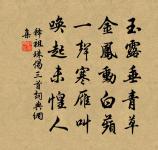 玉露垂青草
金鳳動白蘋
一聲寒雁叫
喚起未惺人
釋祖珠偈三首詞典網
集